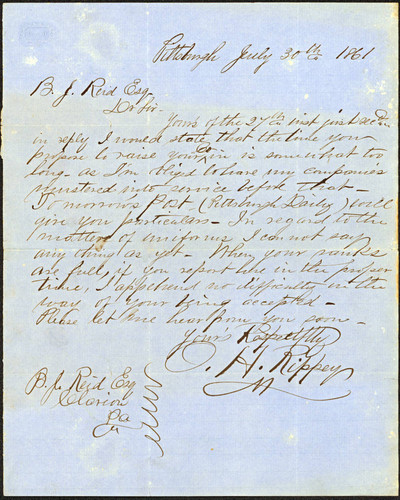 Pittsburgh July 30th 1861
B. J. Reid Esq
Dr Sir.
Yours of the 27th inst just recd
in reply I would state that the time you
propose to raise your Co in is somewhat too
long as I'm obliged to have my companies
mustered into service before that—
To morrow's Post (Pittsburgh Daily) will
give you particulars— In regard to the
matter of uniforms I can not say
any thing as yet— When your ranks
are full, if you report here in the proper
time, I apprehend no difficulty in the
way of your being accepted—
Please let me hear from you soon—
Yours Respectfly
O. H. Rippey
B. J. Reid Esq
Clarion
Pa